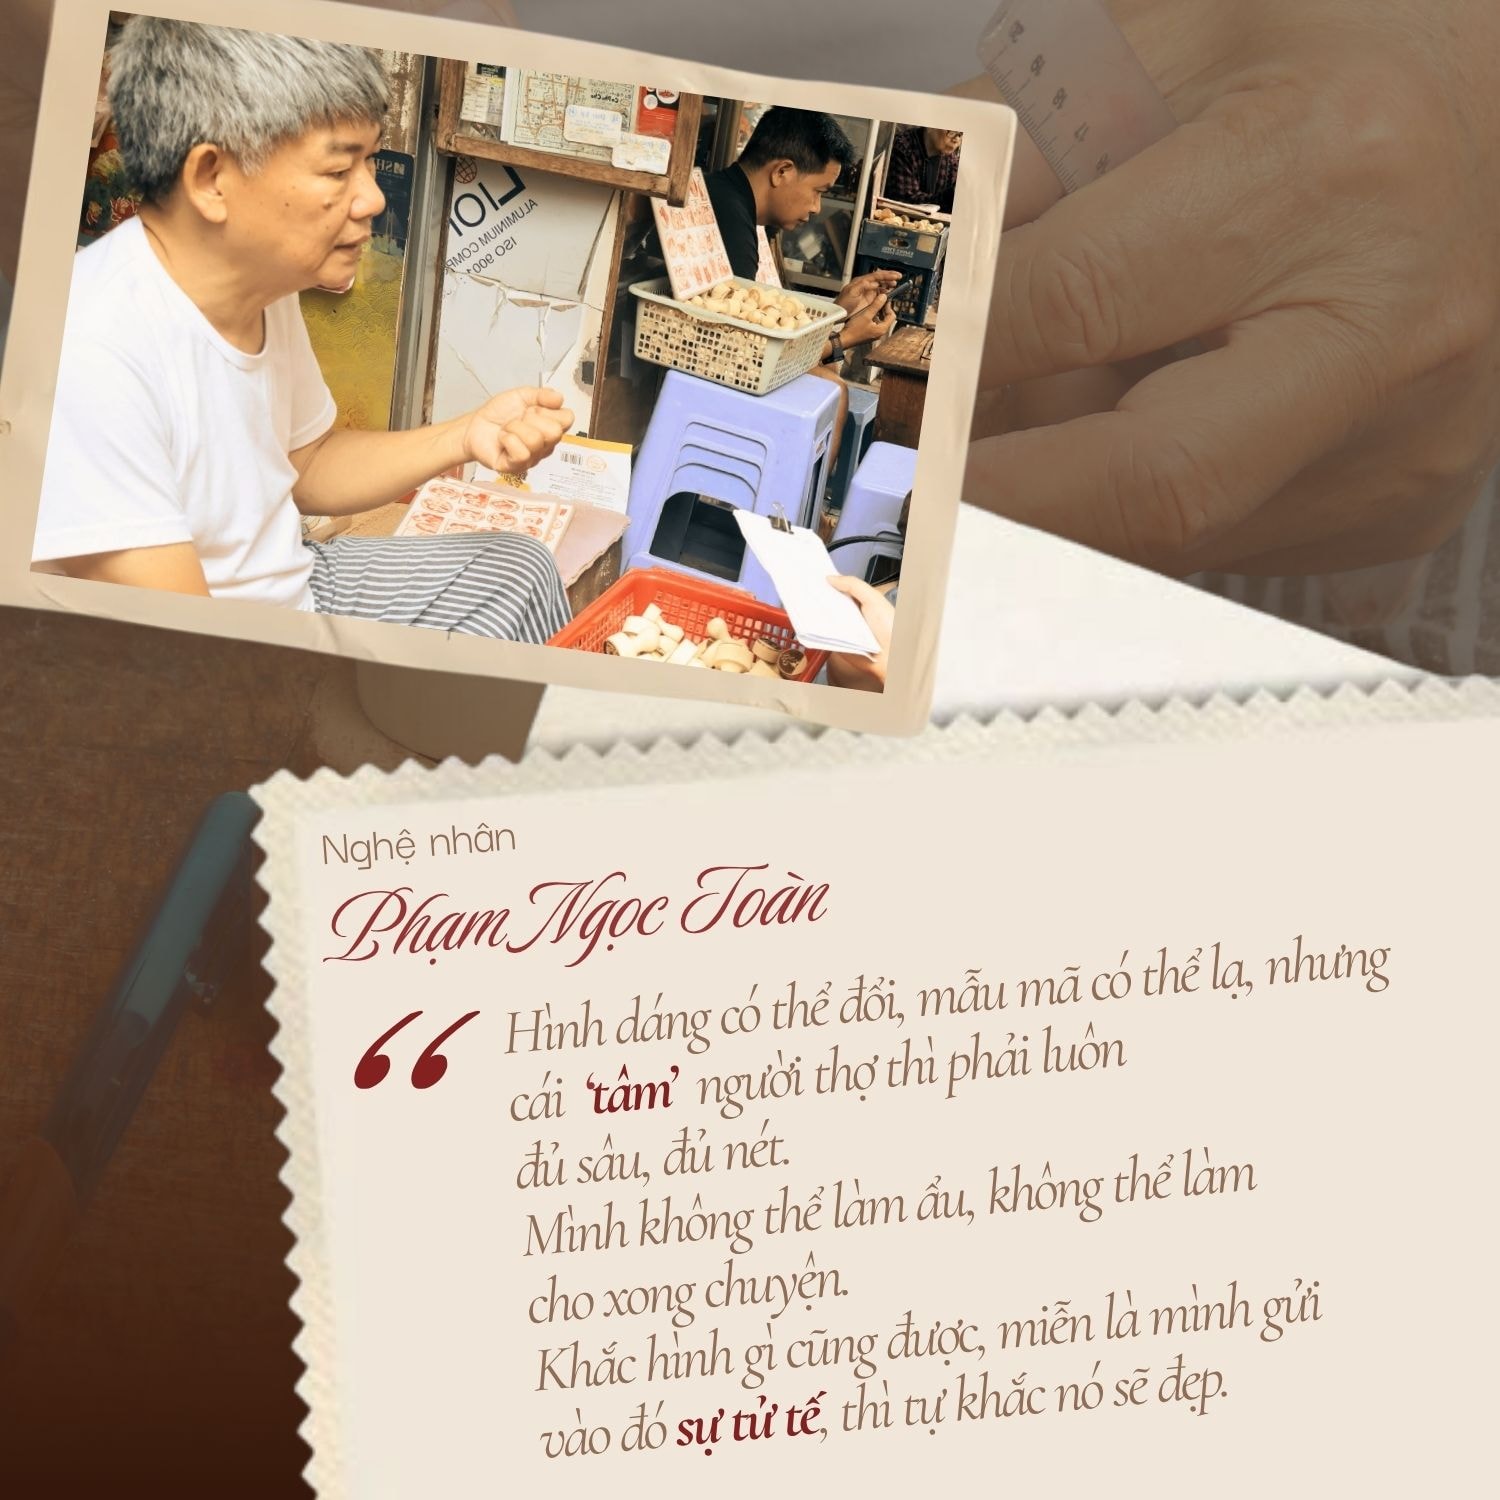 LION
ALUMINIUM COMP
ISO 9001:
Nghệ nhân
Phạm Ngọc Toàn
“ Hình dáng có thể đổi, mẫu mã có thể lạ, nhưng
cái ‘tâm’ người thợ thì phải luôn
đủ sâu, đủ nét.
Mình không thể làm ẩu, không thể làm
cho xong chuyện.
Khắc hình gì cũng được, miễn là mình gửi
vào đó sự tử tế, thì tự khắc nó sẽ đẹp.